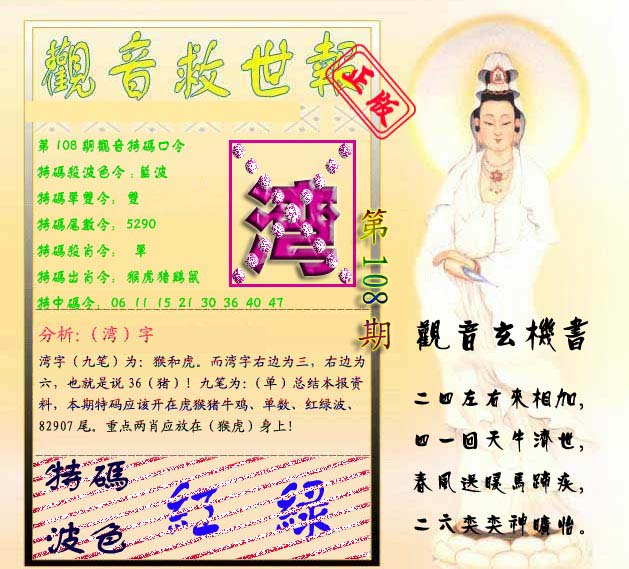 觀音救世報
正版
第108期觀音特碼口令
特碼殺波色令：藍波
特碼單雙令： 雙
特碼尾數令： 5290
特碼殺肖令： 單
特碼出肖令： 猴虎猪鷄鼠
特中碼令： 06 11 15 21 30 36 40 47
湾
第108期
分析:（湾）字
湾字（九笔）为：猴和虎。而湾字右边为三，右边为
六，也就是说36（猪）！九笔为：（单）总结本报资
料，本期特码应该开在虎猴猪牛鸡、单数、红绿波、
82907尾。重点两肖应放在（猴虎）身上!
特碼
波色
紅 綠
觀音玄機書
二四左右來相加，
四一回天牛濟世，
春風送暖馬蹄疾，
二六奕奕神曠怡。